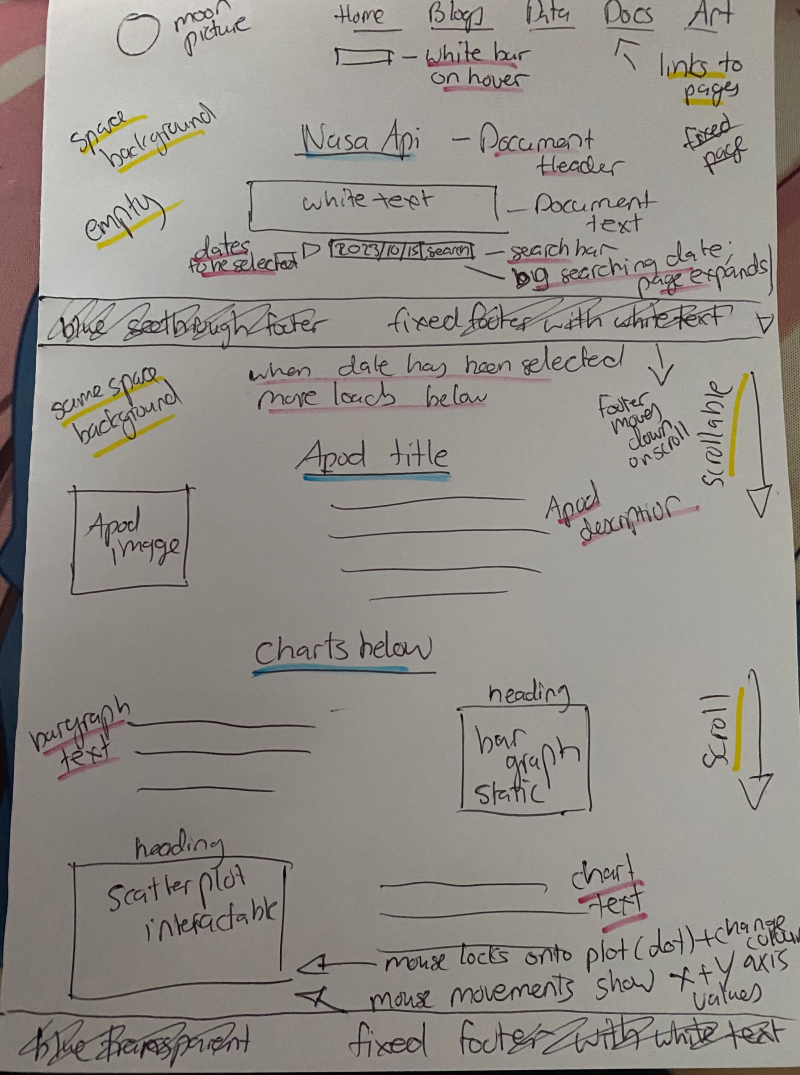 moon
picture
Home Blogs Data Docs Art
white bar
on hover
links to
pages
Space
background
Nasa Api - Document
Header
fixed
page
empty
white text
Document
text
dates
to be selected
2023/10/15 search
- search bar
by searching date;
page expands
blue seethrough footer fixed footer with white text
when date has been selected
more loads below
same space
background
footer
moves
down
on scroll
Scrollable
Apod title
Apod
image
Apod
description
Charts below
bargraph
text
heading
bar
graph
static
scroll
heading
Scatterplot
interactable
chart
text
mouse locks onto plot (dot) + change
colour
mouse movements show x + y axis
values
blue transparent fixed footer with white text